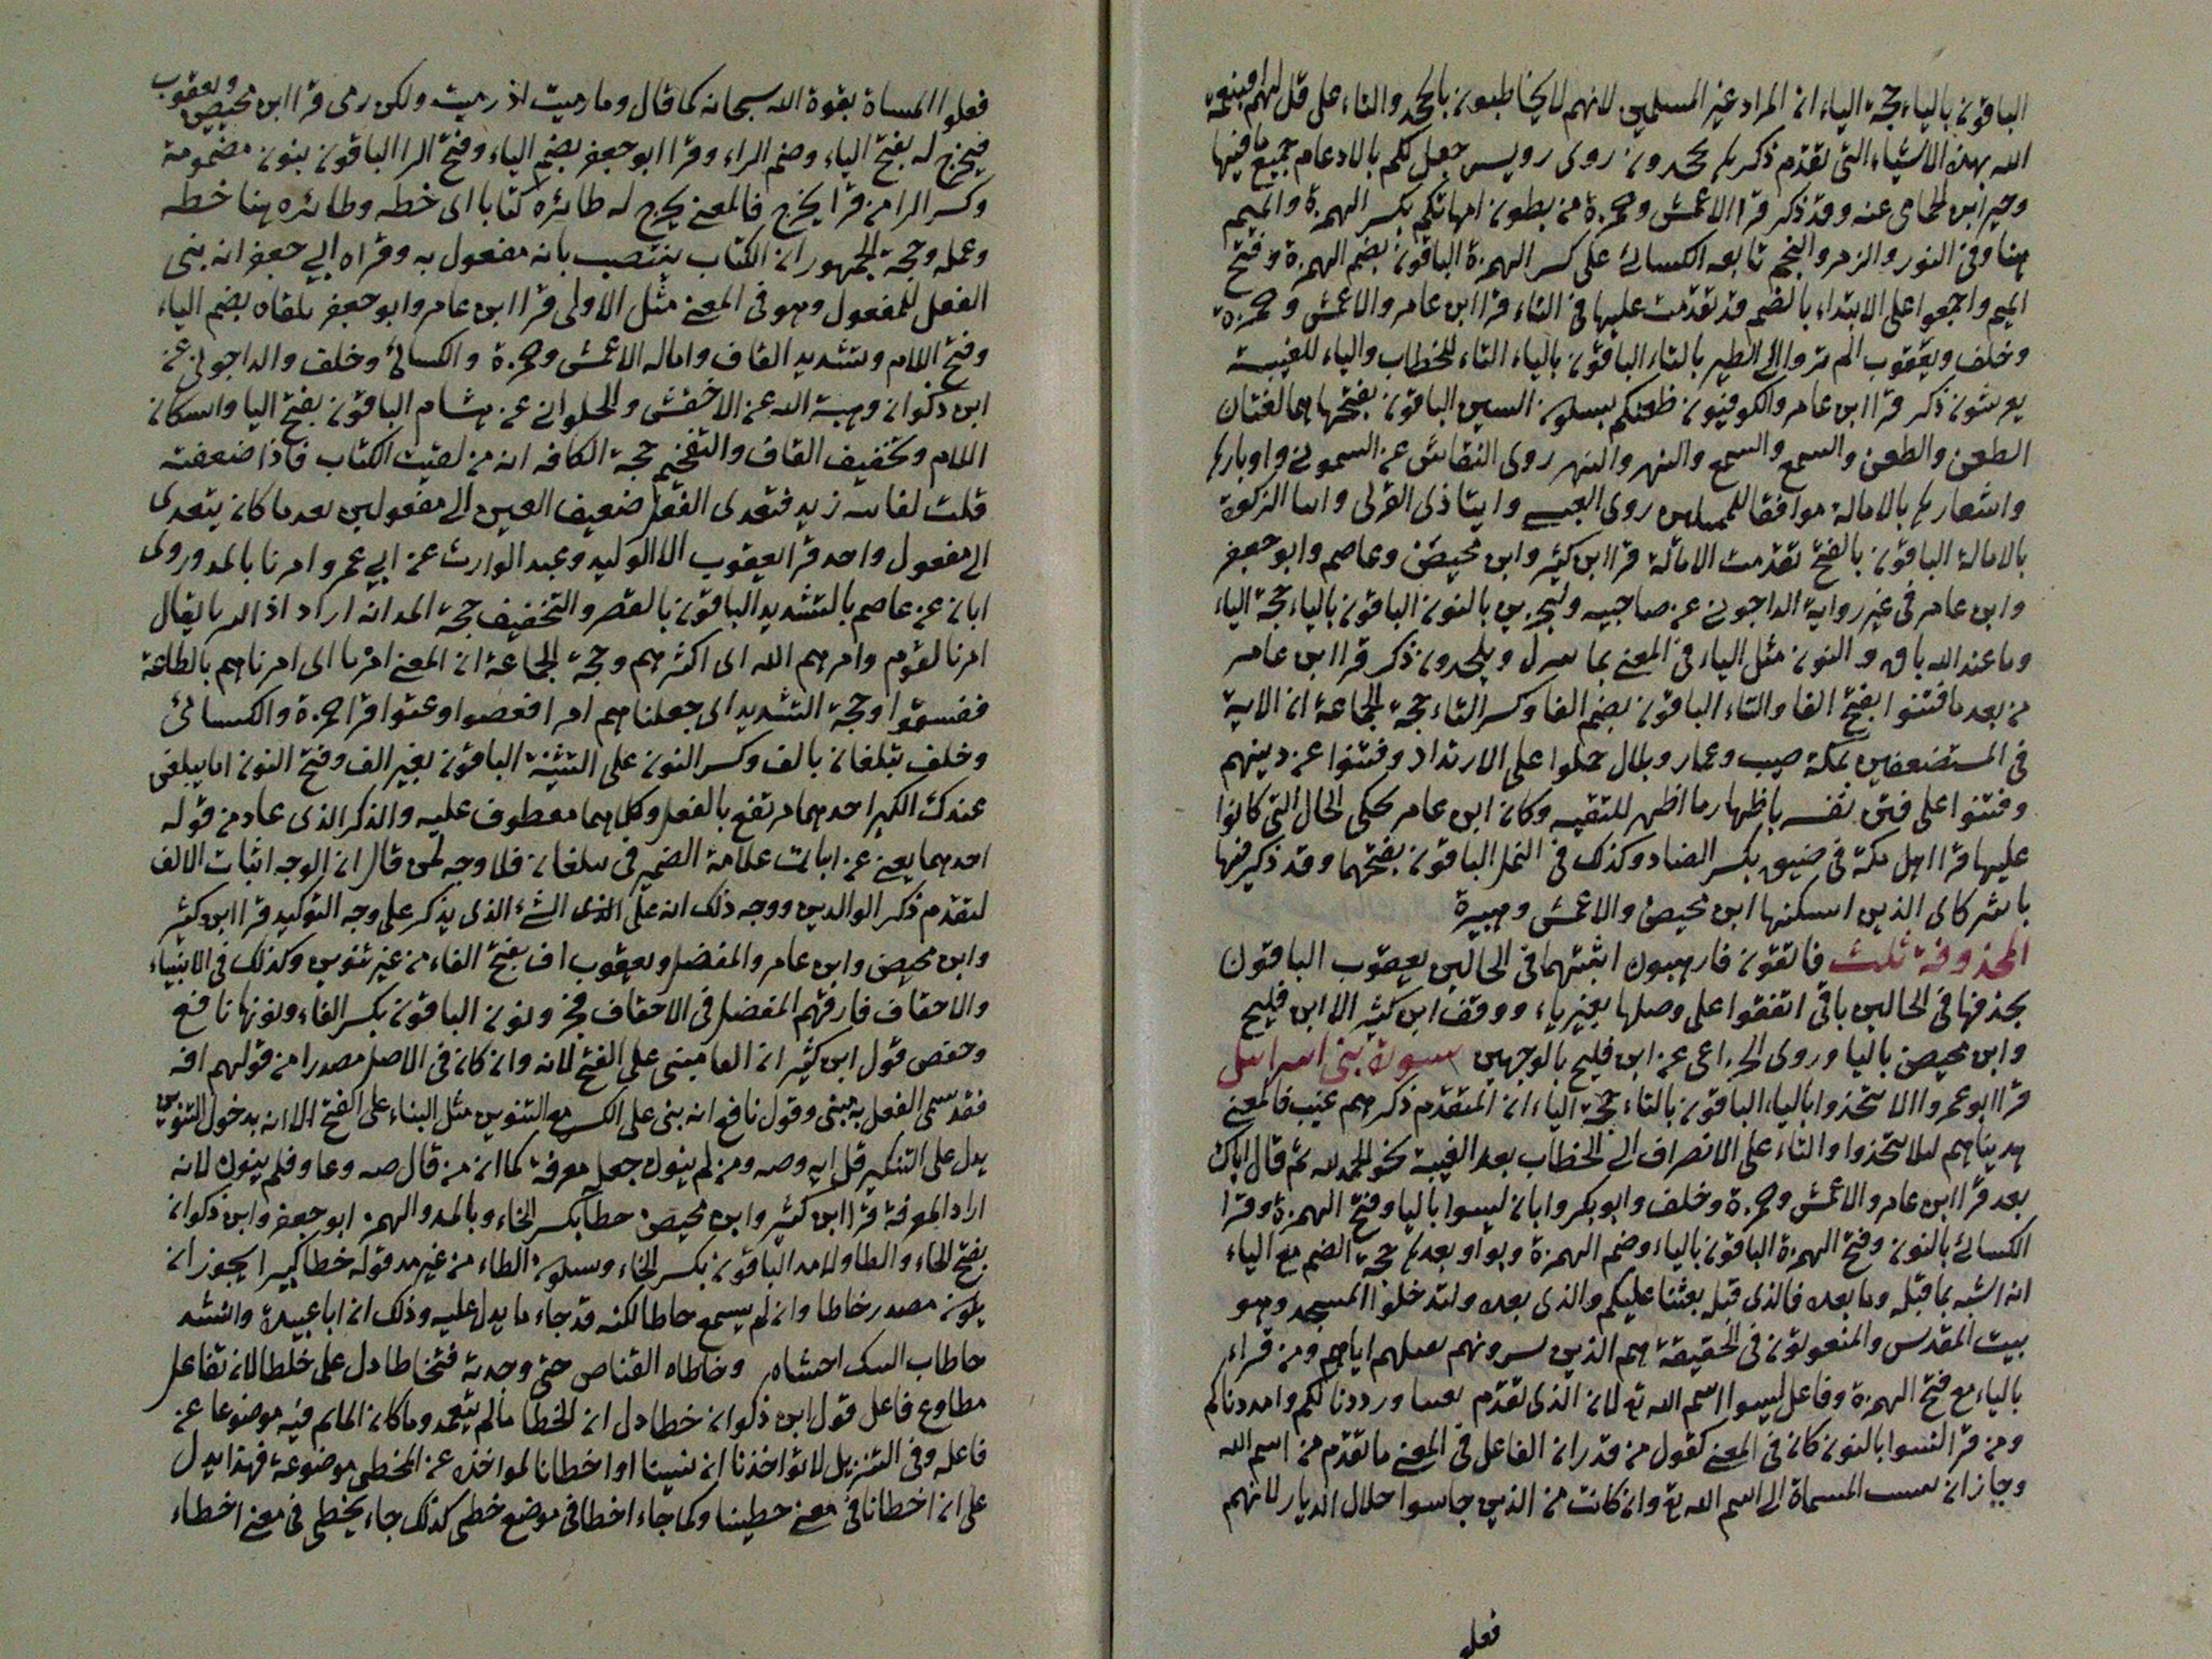 الباقون بالياء حجة الياء ان المراد غير المسلمين لانهم لا يخاطبون بالجحد والتاء على قل لهم افبنعمة
الله بهذه الاشياء التى تقدم ذكرها يجحدون روى رويس جعل لكم بالادغام جميع ما فيها
وخير ابن الحمامى عنه وقد ذكر قرا الاعمش وحمزة من بطون امهاتكم بكسر الهمزة والميم
هنا وفى النور والزمر والنجم تابعه الكسائى على كسر الهمزة الباقون بضم الهمزة وفتح
الميم واجمعوا على الابتداء بالضم قد تقدمت عليها فى النساء قرا ابن عامر والاعمش وحمزة
وخلف ويعقوب الم تروا الى الطير بالتاء الباقون بالياء التاء للخطاب والياء للغيبة
يعرشون ذكر قرا ابن عامر والكوفيون ظعنكم بسكون العين الباقون بفتحها هما لغتان
الطعن والطعن والسمع والسمع والنهر والنهر روى النقاش عن السمونى واوبارها
واشعارها بالامالة موافقا روى العبسى وايتاذى القربى وانها الزكوة
بالامالة الباقون بالفتح تقدمت الامالة قرا ابن كثير وابن محيصن وعاصم وابو جعفر
وابن عامر فى غير رواية الداجونى عن صاحبيه ولنجزين بالنون الباقون بالياء حجة الياء
وما عند الله باق و النون مثل الياء فى المعنى بما ينزل ويلحدون ذكر قرا ابن عامر
من بعد ما فتنوا بفتح الفا والتاء الباقون بضم الفا وكسر التاء حجة الجماعة ان الاية
فى المستضعفين بمكة صهيب وعمار وبلال حملوا على الارتداد وفتنوا عن دينهم
وفتنوا على فتن نفسه باظهار ما اظهر للتقيه وكان ابن عامر يحكى الحال التى كانوا
عليها قرا اهل مكة فى ضيق بكسر الضاد وكذلك فى النمل الباقون بفتحهما وقد ذكر فيها
يا شركاى الذين اسكنها ابن محيصن والاعمش وهبيرة
المحذوفة ثلث فاتقون فارهبون اثبتهما فى الحالين يعقوب الباقون
بحذفها فى الحالين باق اتفقوا على وصلها بغير ياء ووقف ابن كثير الا ابن فليح
وابن محيصن باليا وروى الخزاعى عن ابن فليح بالوجهين سورة بنى اسرائيل
قرا ابو عمرو الا يتخذوا بالياء الباقون بالتاء حجة الياء ان المتقدم ذكرهم غيب فالمعنى
هديناهم لئلا يتخذوا والتاء على الانصراف الى الخطاب بعد الغيبة نحو الحمد لله ثم قال اياك
بعد قرا ابن عامر والاعمش وحمزة وخلف وابو بكر وابان ليسوا باليا وفتح الهمزة وقرا
الكسائى بالنون وفتح الهمزة الباقون بالياء وضم الهمزة وبواو بعدها حجة الضم مع الياء
انه اشبه بما قبله وما بعده فالذى قبله بعثنا عليكم والذى بعده وليدخلوا المسجد وهو
بيت المقدس والمنعوتون فى الحقيقة هم الذين يسوونهم بقتلهم اياهم ومن قراء
بالياء مع فتح الهمزة وفاعل ليسوا اسم الله تع لان الذى تقدم بعثنا ورددنا لكم وامددناكم
ومن قرا لنسوا بالنون كان فى المعنى كقول من قدر ان الفاعل فى المعنى ما تقدم من اسم الله
وجاز ان ينسب المساة الى اسم الله تع وان كانت من الذين جاسوا خلال الديار لانهم
فعلو
فعلوا المساة بقوة الله سبحانه كما قال وما رميت اذ رميت ولكن رمى قرا ابن محيصن ويعقوب
فيخرج له بفتح الياء وضم الراء وقرا ابو جعفر بضم الياء وفتح الرا الباقون بنون مضمومة
وكسر الرا من قرا يخرج فالمعنى يخرج له طائره كتابا اى خطه وطائره هنا خطه
وعمله وحجة الجمهور ان الكتاب ينتصب بانه مفعول به وقراه ابي جعفر انه بنى
الفعل للمفعول وهو فى المعنى مثل الاولى قرا ابن عامر وابو جعفر يلقاه بضم الياء
وفتح اللام وتشديد القاف واماله الاعمش وحمزة والكسائى وخلف والداجونى عن
ابن ذكوان وهبة الله عن الاخفش والحلوانى عن هشام الباقون بفتح اليا واسكان
اللام وتخفيف القاف والتفخيم حجة الكافه انه من لقيت الكتاب فاذا ضعفته
قلت لقانيه زيد فتعدى الفعل بتضعيف العين الى مفعولين بعد ما كان يتعدى
الى مفعول واحد قرا يعقوب الا الوليد وعبد الوارث عن ابي عمرو امرنا بالمد وروى
ابان عن عاصم بالتشديد الباقون بالقصر والتخفيف حجة المد انه اراد اذا الدنا يقال
امرنا القوم وامرهم الله اى اكثرهم وحجة الجماعة ان المعنى امرنا اى امرناهم بالطاعة
ففسقوا وحجة التشديد اى جعلناهم امرا فعصوا وعتوا قرا حمزة والكسائى
وخلف يبلغان بالف وكسر النون على التثنية الباقون بغير الف وفتح النون اما يبلغن
عندك الكبر احدهما مرتفع بالفعل وكلاهما معطوف عليه والذكر الذى عاد من قوله
احدهما يغنى عن اثبات علامة الضمير فى يبلغان فلا وجه لمن قال ان الوجه اثبات الالف
لتقدم ذكر الوالدين ووجه ذلك انه على الذى الشئ الذى يذكر على وجه التوكيد قرا ابن كثير
وابن محيصن وابن عامر والمفضل ويعقوب اف بفتح الفاء من غير تنوين وكذلك فى الانبياء
والاحقاف فارقهم المفضل فى الاحقاف فجر ونون الباقون بكسر الفاء ونونها نافع
وحفص قول ابن كثير ان الفا مبنى على الفتح لانه وان كان فى الاصل مصدرا من قولهم افه
فقد سمى الفعل به مبنى وقول نافع انه بنى على الكسر مع التنوين مثل البناء على الفتح الا انه بدخول التنوين
يدل على التنكير قل ايه وصه ومن لم ينون جعله معرفة كما ان من قال صه وعا وفلم ينون لانه
اراد المعرفة قرا ابن كثير وابن محيصن خطا بكسر الخاء وبالمد والهمز ابو جعفر وابن ذكوان
بفتح الخاء والطا ولا مد الباقون بكسر الخاء وسكون الطاء من غير مد قوله خطا كبيرا يجوز ان
يكون مصدر خاطا وان لم يسمع خاطا لكنه قد جاء ما يدل عليه وذلك ان ابا عبيدة وانشد
وخاطاه القناص حتى وجدته فتخاطا دل على خاطا لان تفاعل
مطاوع فاعل قول ابن ذكوان خطا دل ان الخطا ما لم يتعمد وما كان الماثم فيه موضوعا عن
فاعله وفى التنزيل لا تؤاخذنا ان نسينا او اخطانا لمواخذه عن المخطى موضوعة فهذا يدل
على ان اخطانا فى معنى خطينا وكما جاء اخطا فى موضع خطى كذلك جاء يخطى فى معنى اخطاء